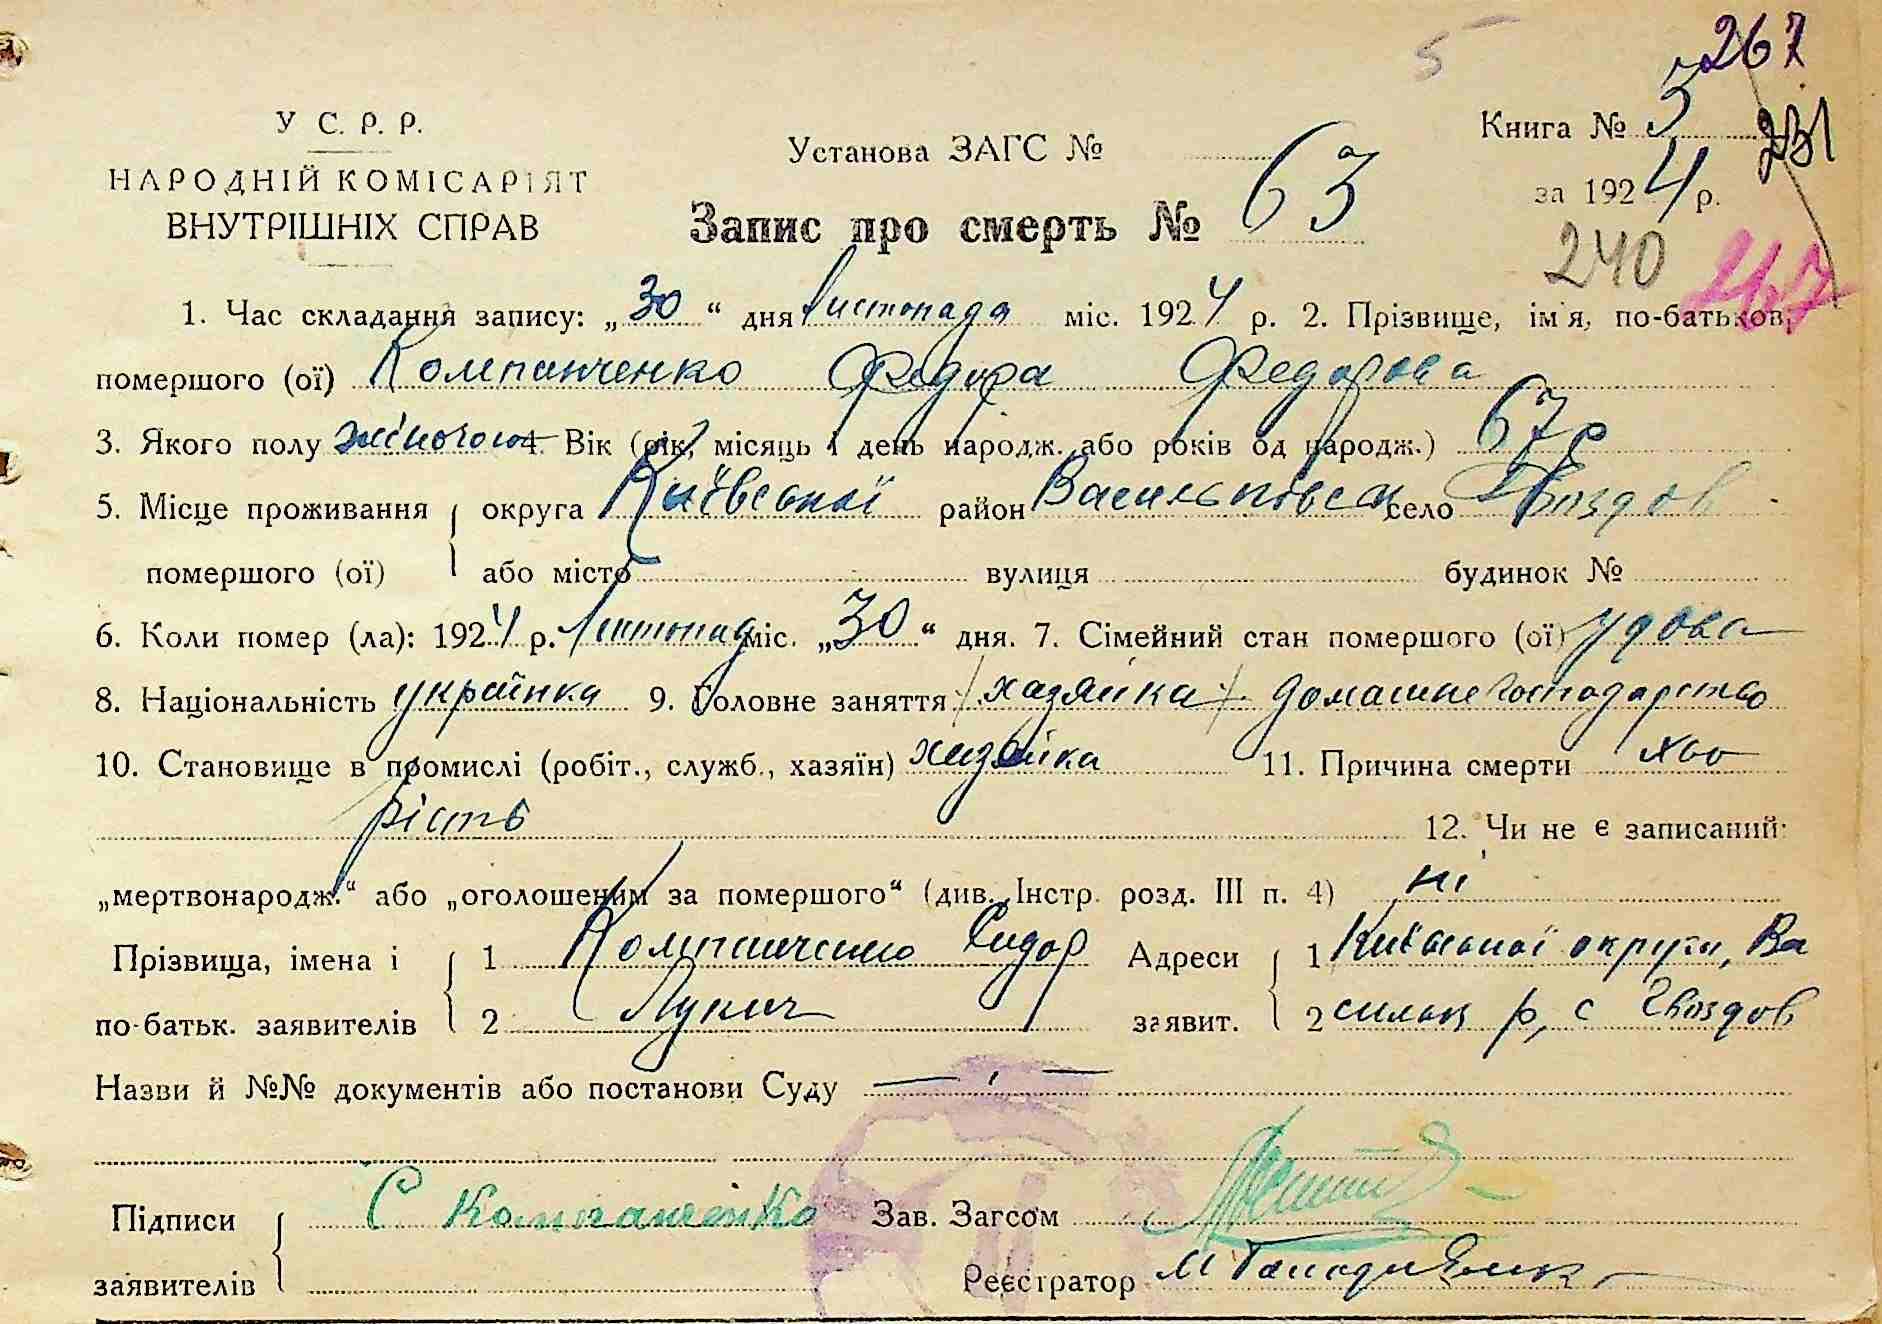 5 267
У С. Р. Р.
НАРОДНІЙ КОМІСАРІЯТ
ВНУТРІШНІХ СПРАВ
Установа ЗАГС №
Запис про смерть № 63
Книга № 3 231
за 1924 р.
240 267
1. Час складання запису: „30“ дня листопада міс. 1924 р. 2. Прізвище, ім'я, по-батьков,
помершого (ої) Компанченко Федора Федорова
3. Якого полу жіночого 4. Вік (рік, місяць і день народж. або років од народж.) 67 р
5. Місце проживання округа Київської район Васильківськ село Гвоздов
помершого (ої) або місто вулиця будинок №
6. Коли помер (ла): 1924 р. листопад міс. „30“ дня. 7. Сімейний стан помершого (ої) удова
8. Національність українка 9. Головне заняття хазяйка домашнє господарство
10. Становище в промислі (робіт., служб., хазяїн) хазяйка 11. Причина смерти хво
рість 12. Чи не є записаний:
„мертвонародж.“ або „оголошеним за помершого“ (див. Інстр. розд. III п. 4) ні
Прізвища, імена і 1 Компанченко Сидор Адреси 1 Київської округи, Ва
по-батьк. заявителів 2 Лукич заявит. 2 сильк р, с Гвоздов
Назви й №№ документів або постанови Суду
Підписи С Компанченко Зав. Загсом
заявителів Реєстратор М